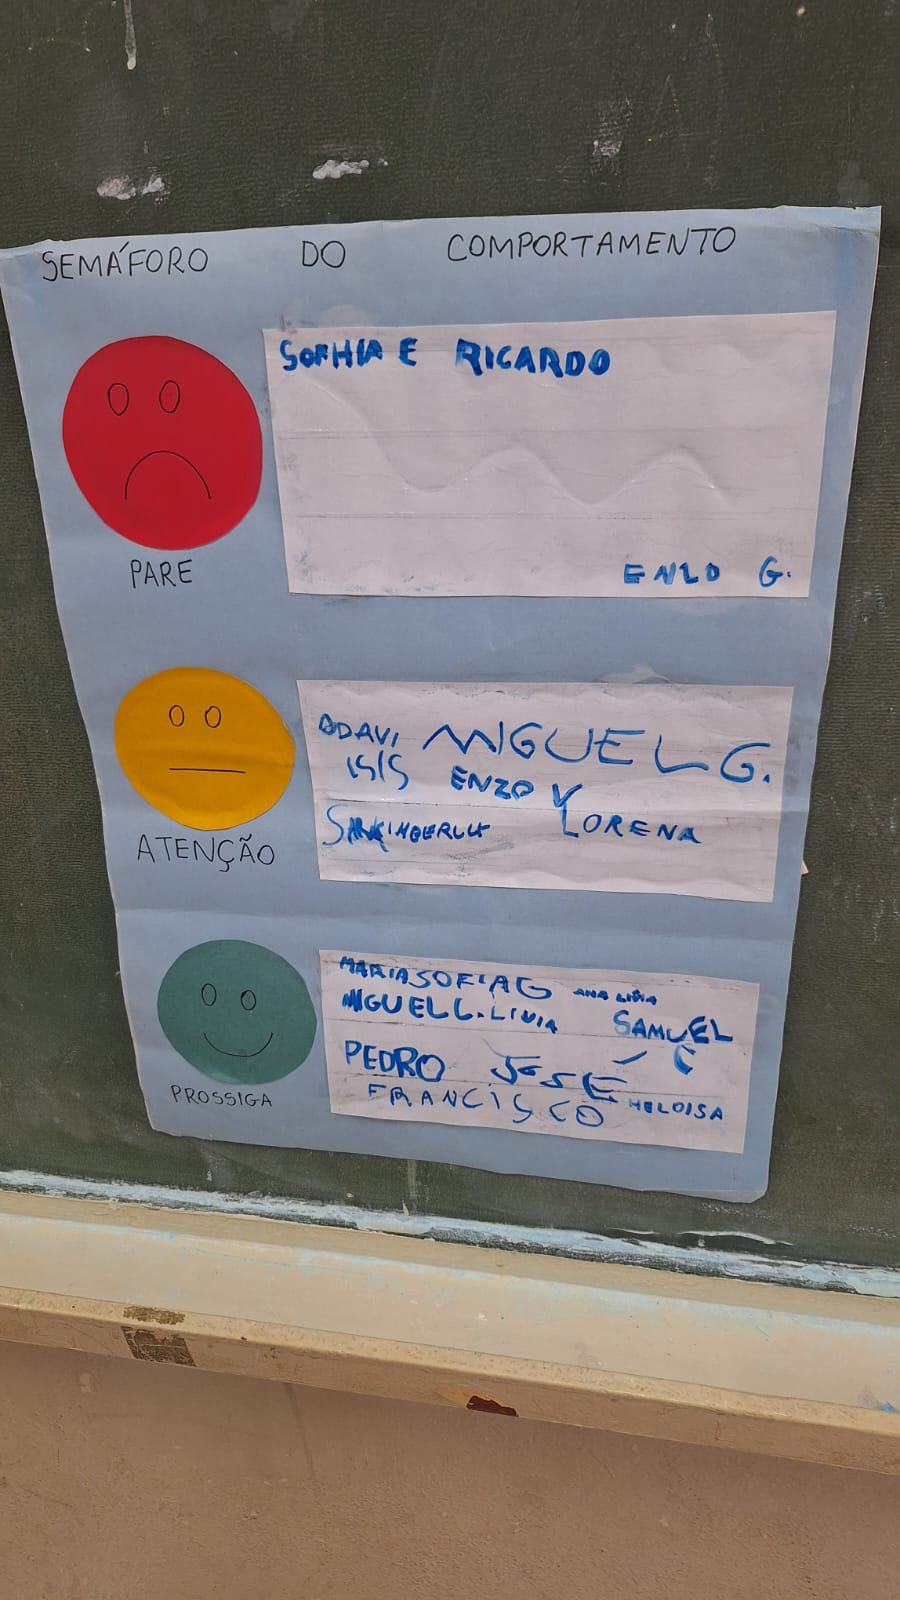 SEMÁFORO DO COMPORTAMENTO
SOPHIA E RICARDO
ENZO G.
PARE
DAVI MIGUEL G.
ISIS ENZO V
LORENA
ATENÇÃO
MARIA SOFIA G ANA LIVIA
MIGUEL L. LIVIA SAMUEL
PEDRO JOSE
FRANCISCO HELOISA
PROSSIGA